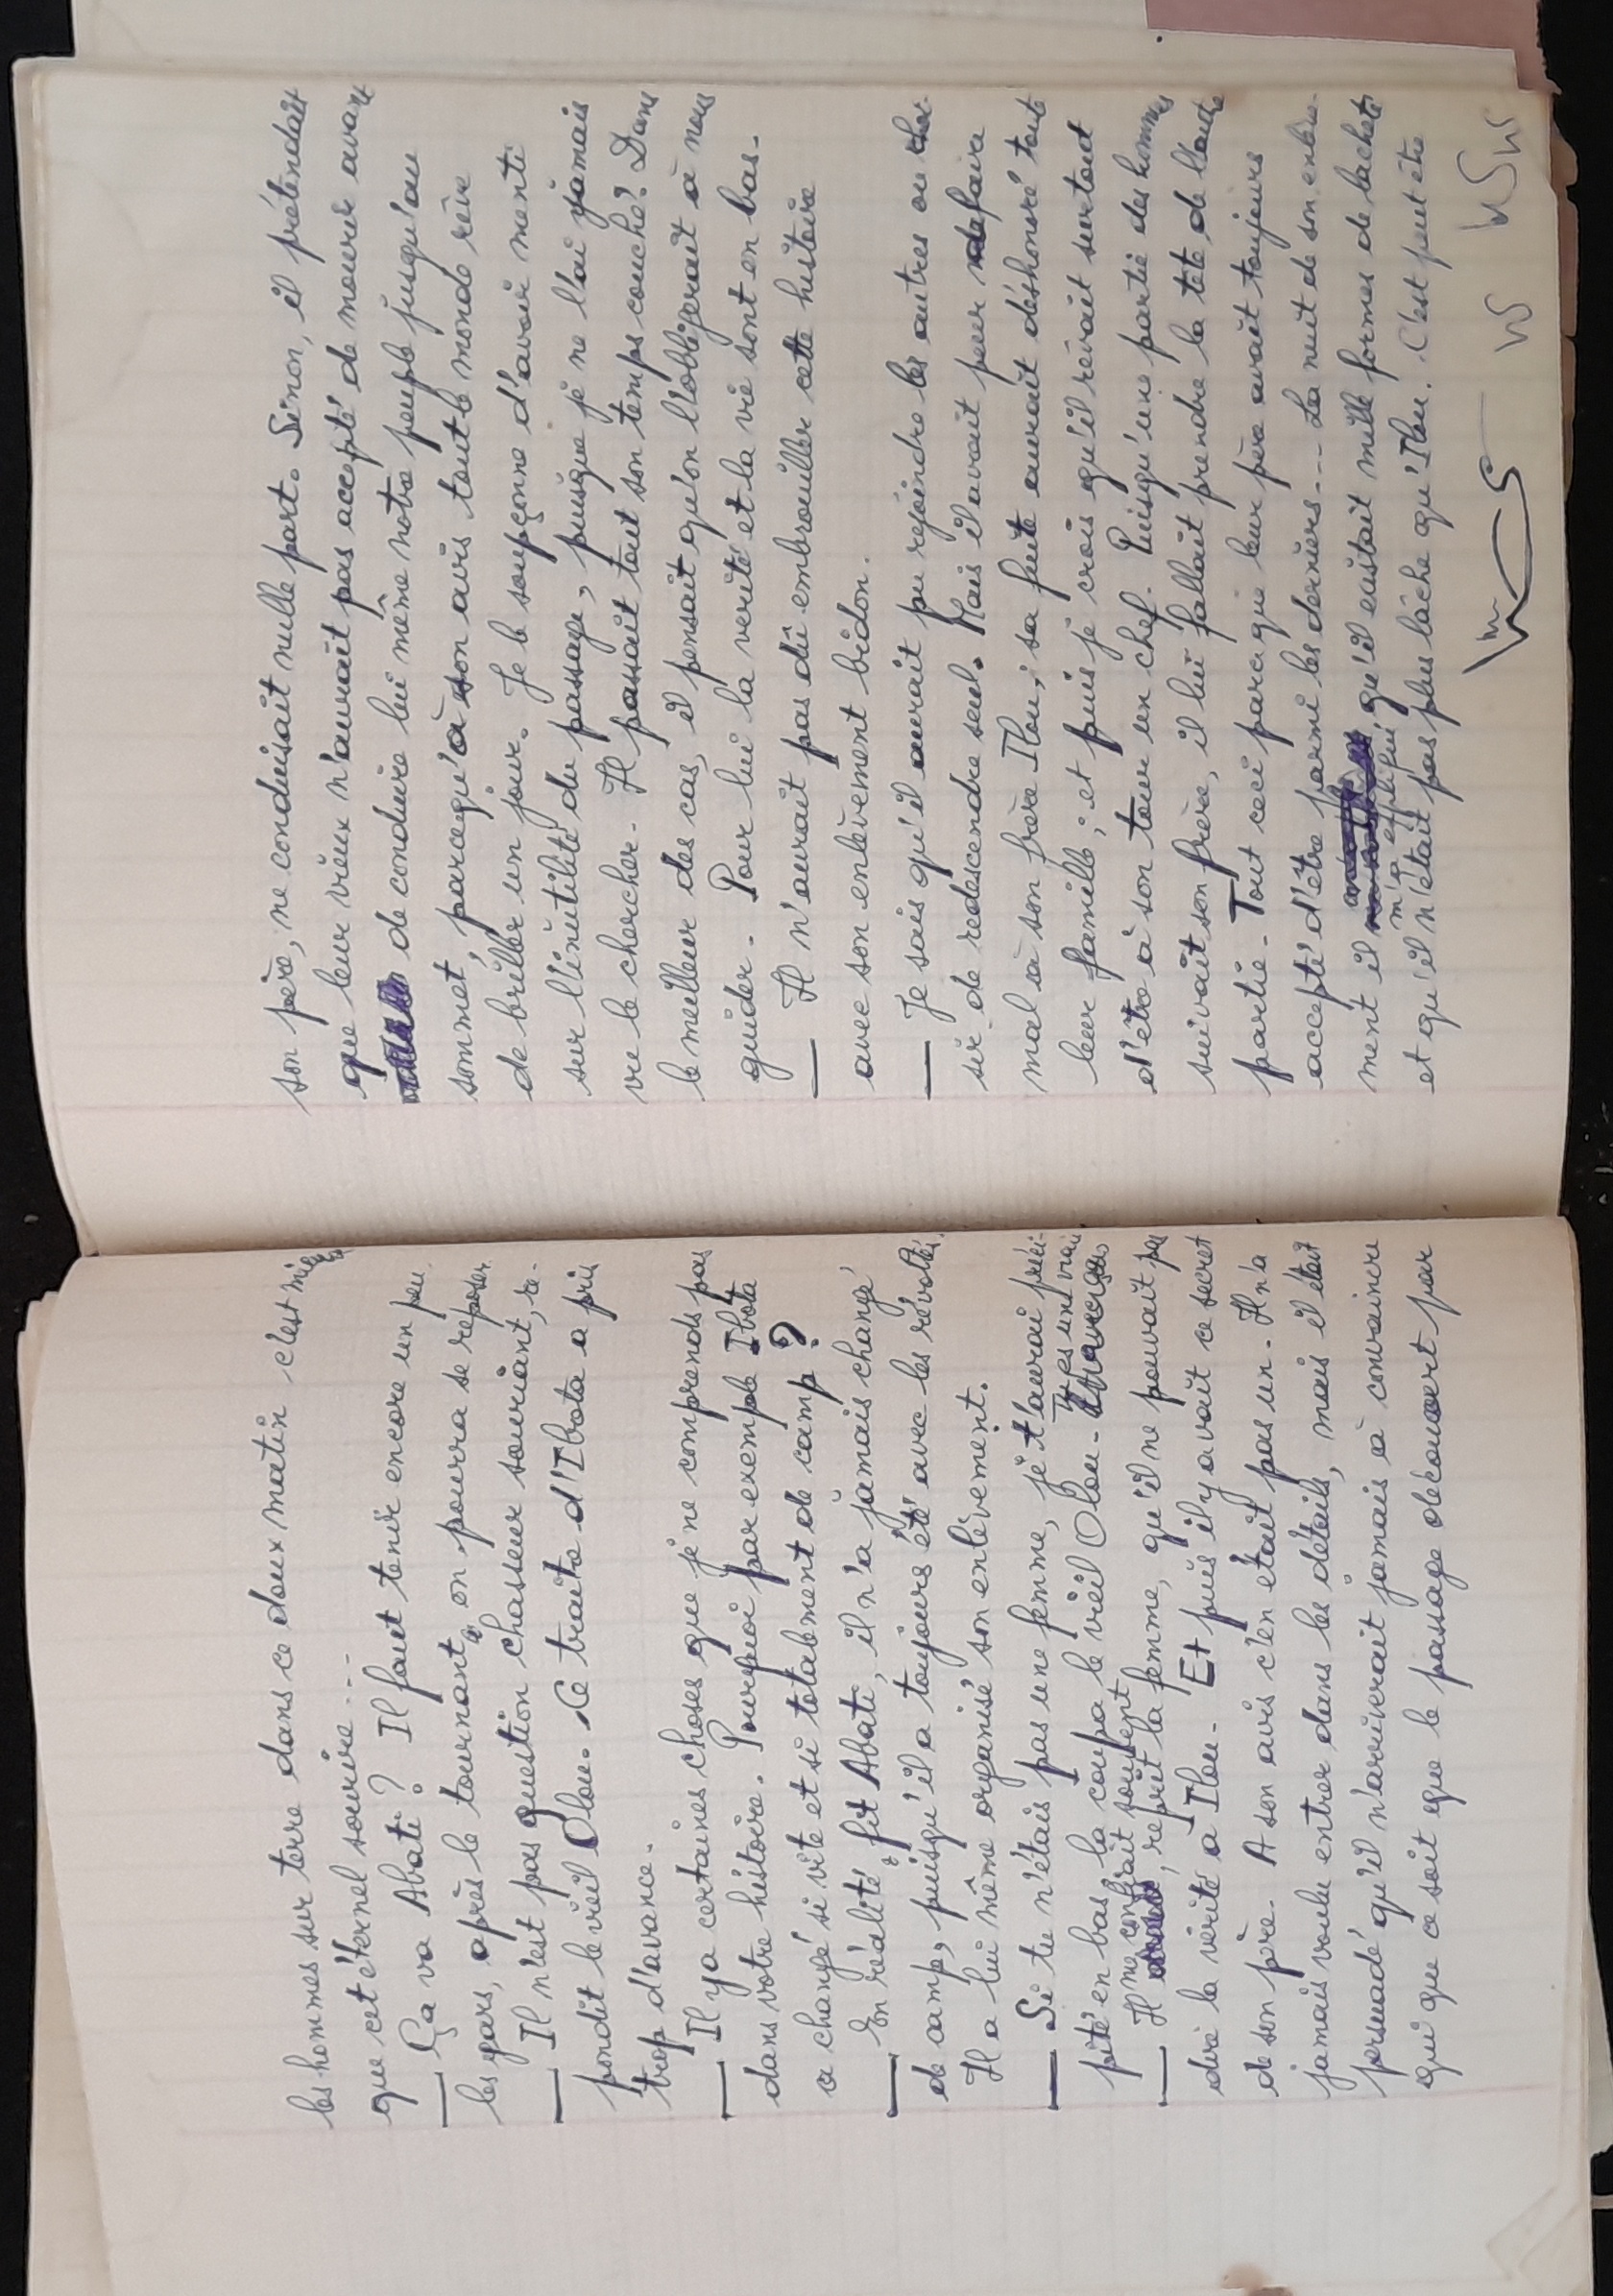 les hommes sur terre dans ce doux matin c'est mieux
que cet éternel sourire...
— Ça va Abati ? Il faut tenir encore un peu
les gars, après le tournant on pourra se reposer
— Il n'est pas question chasseur souriant, ré-
pondit le vieil Olou. Ce traitre d'Ibota a pris
trop d'avance.
— Il y a certaines choses que je ne comprends pas
dans votre histoire. Pourquoi par exemple Ibota
a changé si vite et si totalement de camp ?
— En réalité, fit Abati, il n'a jamais changé
de camp, puisqu'il a toujours été avec les révoltés.
Il a lui même organisé son enlèvement.
— Si tu n'étais pas une femme, je t'aurai préci-
pité en bas, la coupa le vieil Olou. Tu es un vrai
— Il me confiait souvent, reprit la femme, qu'il ne pouvait pas
dire la vérité à Ilou. Et puis il y avait ce secret
de son père. A son avis c'en était pas un. Il n'a
jamais voulu entrer dans les détails, mais il était
persuadé qu'il n'arriverait jamais à convaincre
qui que ce soit que le passage découvert par
son père, ne conduisait nulle part. Sinon, il prétendait
que leur vieux n'aurait pas accepté de mourir avant
de conduire lui même notre peuple jusqu'au
sommet, parcequ'à son avis tout le monde rêve
de briller un jour. Je le soupçonne d'avoir menti
sur l'inutilité du passage, puisque je ne l'ai jamais
vu le chercher. Il passait tout son temps couché ? Dans
le meilleur des cas, il pensait qu'on l'obligerait à nous
guider. Pour lui la verité et la vie sont en bas.
— Il n'aurait pas dû embrouiller cette histoire
avec son enlèvement bidon.
— Je sais qu'il aurait pu rejoindre les autres ou choi-
sir de redescendre seul. Mais il avait peur de faire
mal à son frère Ilou, sa fuite aurait déshonoré toute
leur famille ; et puis je crois qu'il rêvait surtout
d'être à son tour un chef. Puisqu'une partie des hommes
suivait son frère, il lui fallait prendre la tête de l'autre
partie. Tout ceci parce que leur père avait toujours
accepté d'être parmi les derniers... La nuit de son enlève-
ment il m'a expliqué qu'il existait mille formes de lacheté
et qu'il n'était pas plus lâche qu'Ilou. C'est peut être